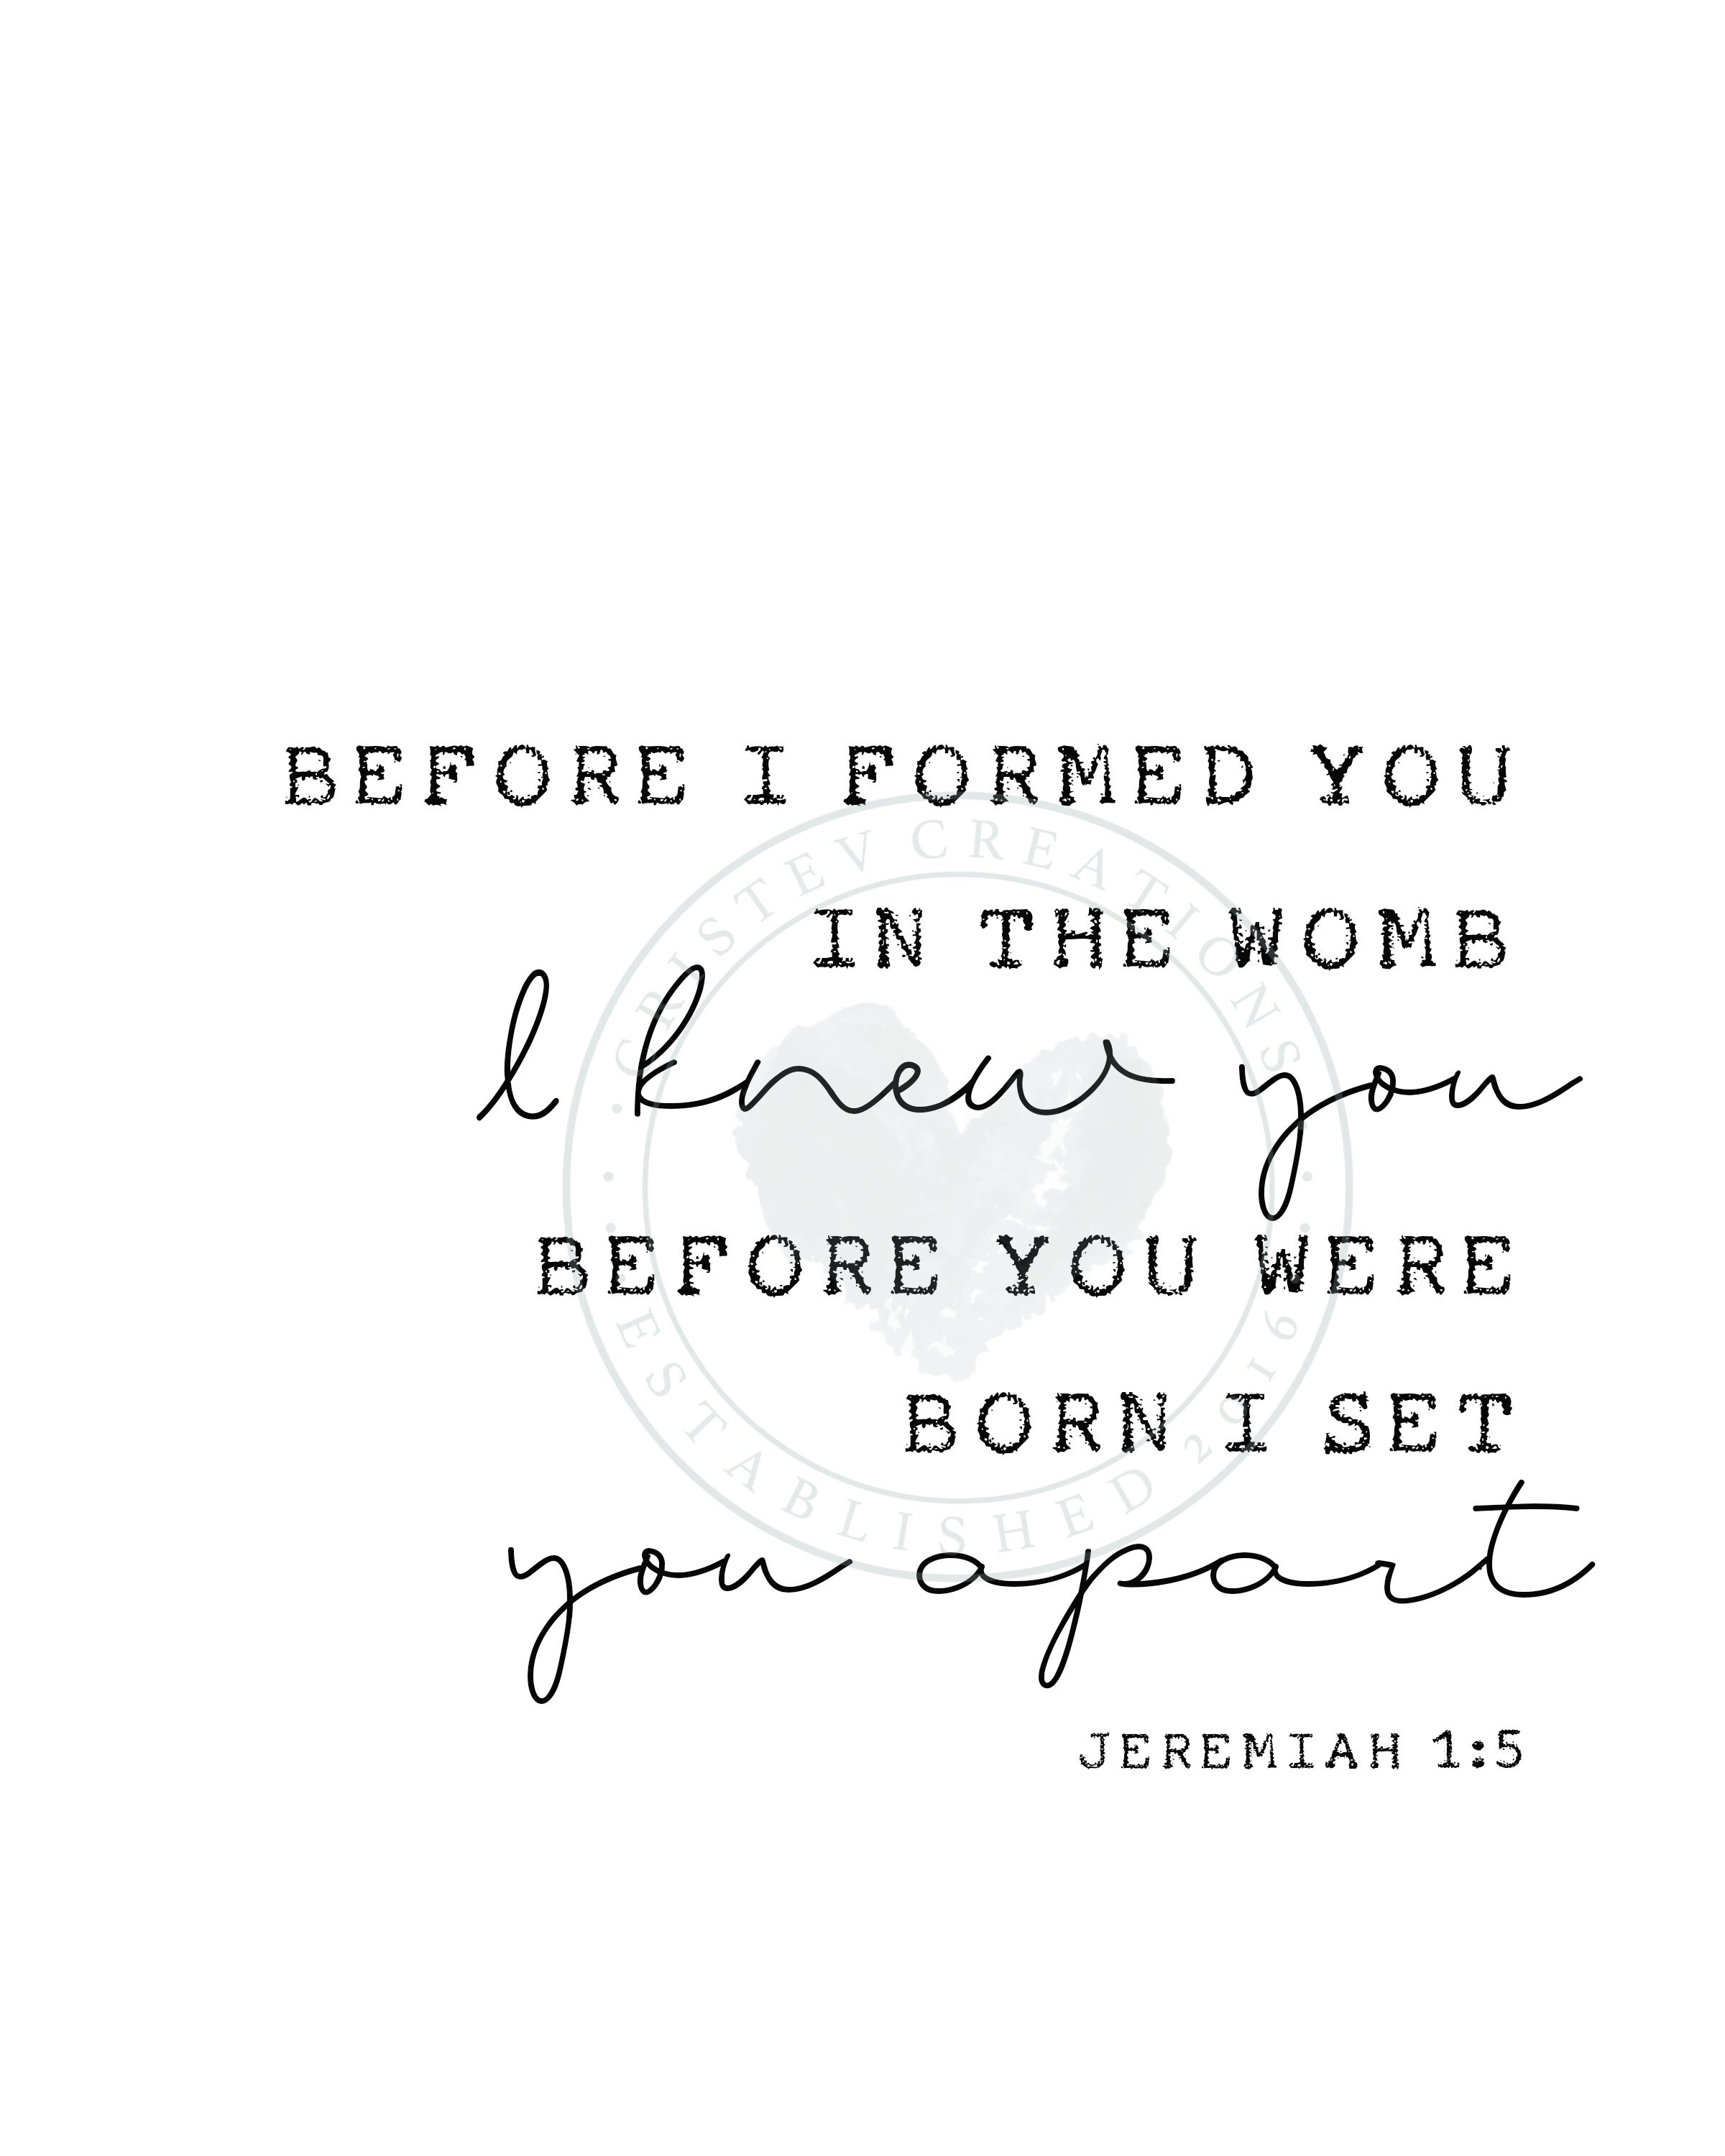 BEFORE I FORMED YOU
IN THE WOMB
I knew you
BEFORE YOU WERE
BORN I SET
you apart
JEREMIAH 1:5
CRISTEV CREATIONS
ESTABLISHED 2016